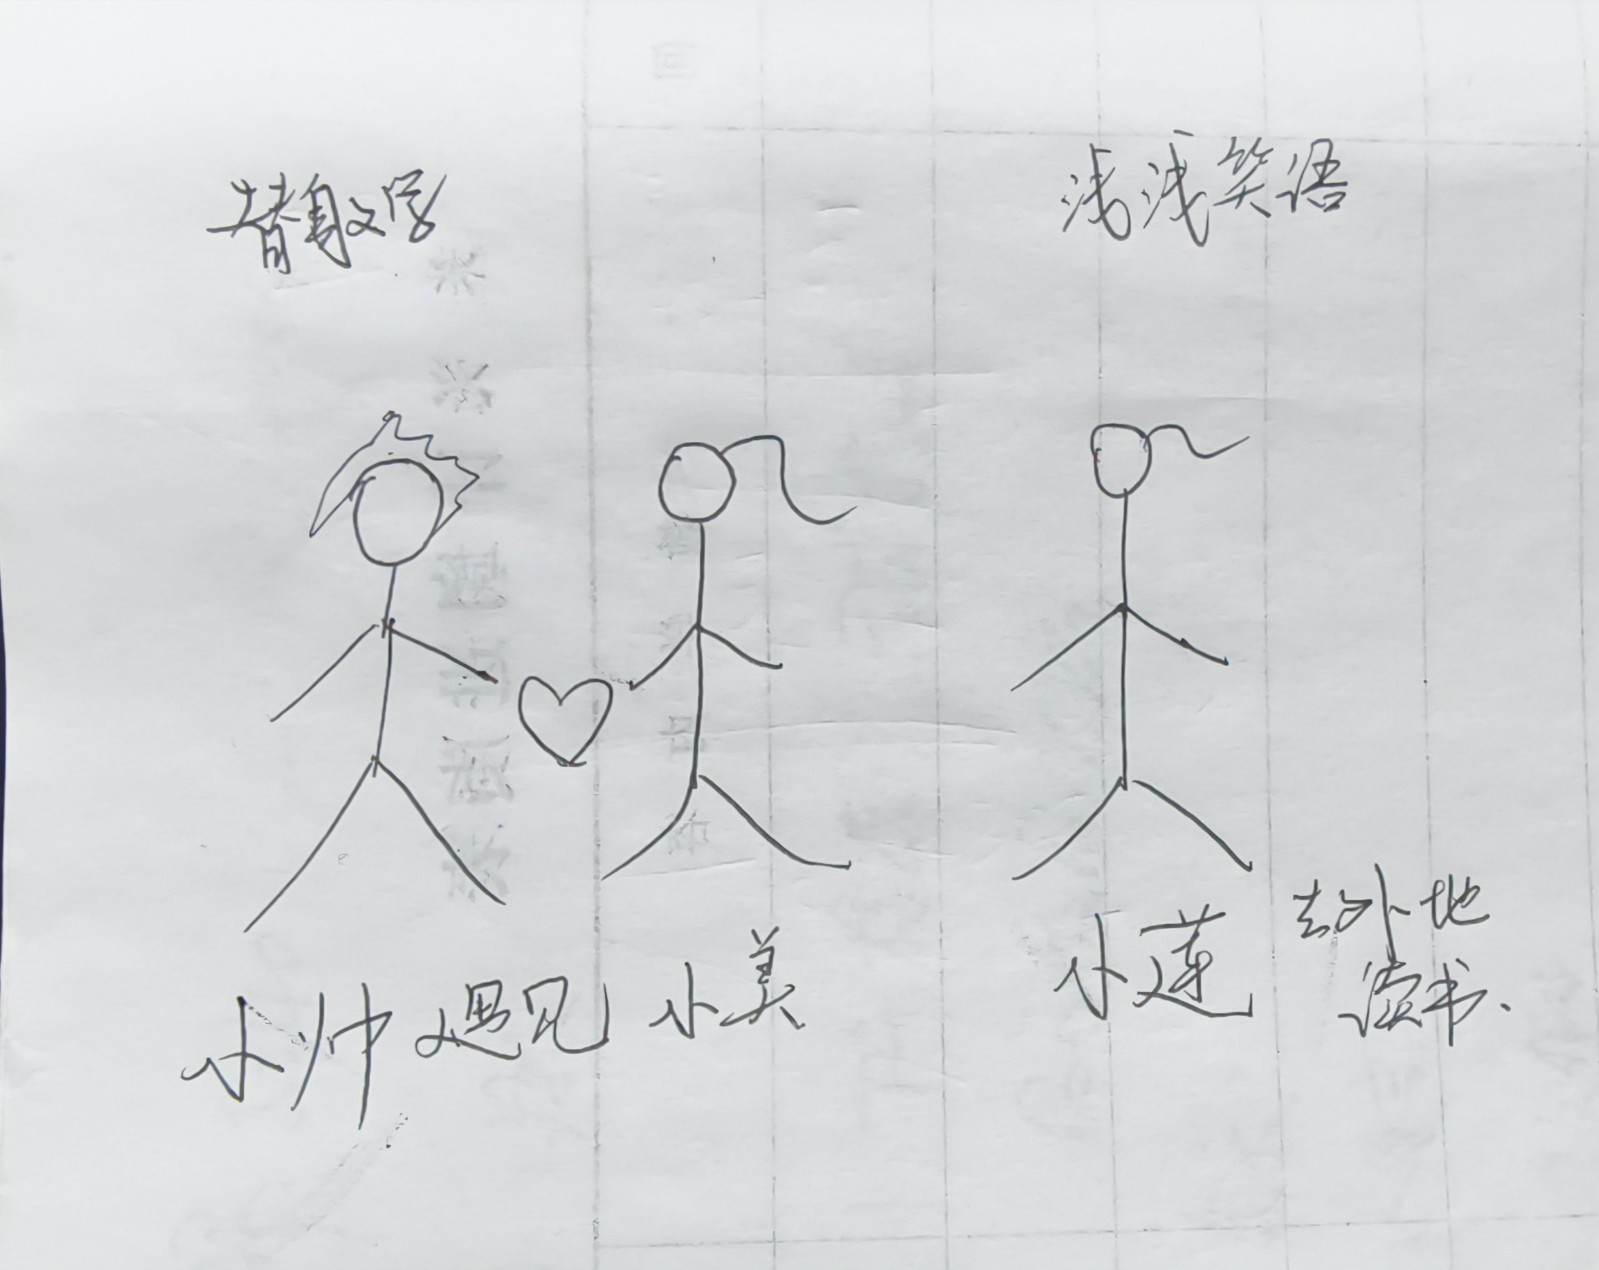 替身文学
浅浅笑语
小帅 遇见 小美
小莲
去外地
读书、